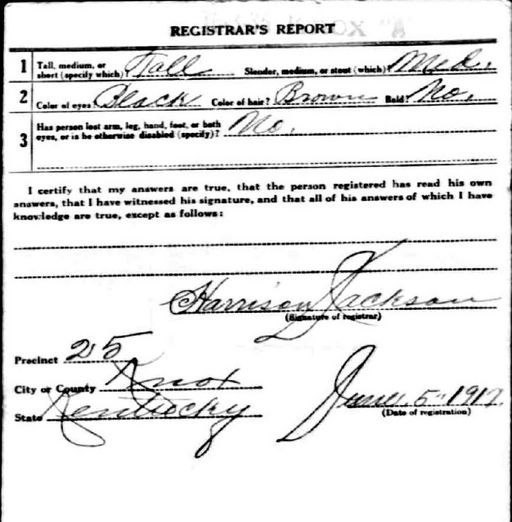 REGISTRAR'S REPORT
1 Tall, medium, or short (specify which)? Tall Slender, medium, or stout (which)? Med.
2 Color of eyes Black Color of hair? Brown Bald? No.
3 Has person lost arm, leg, hand, foot, or both
eyes, or is he otherwise disabled (specify)? No.
I certify that my answers are true, that the person registered has read his own
answers, that I have witnessed his signature, and that all of his answers of which I have
knowledge are true, except as follows:
Harrison Jackson
(Signature of registrar)
Precinct 25
City or County Knox
State Kentucky
June 5 - 1917
(Date of registration)